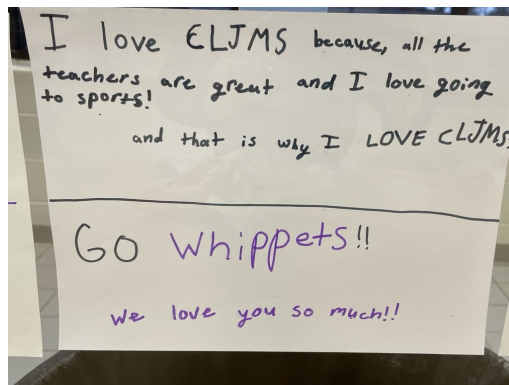 I love CLJMS because, all the
teachers are great and I love going
to sports!
and that is why I LOVE CLJMS
GO Whippets!!
We love you so much!!